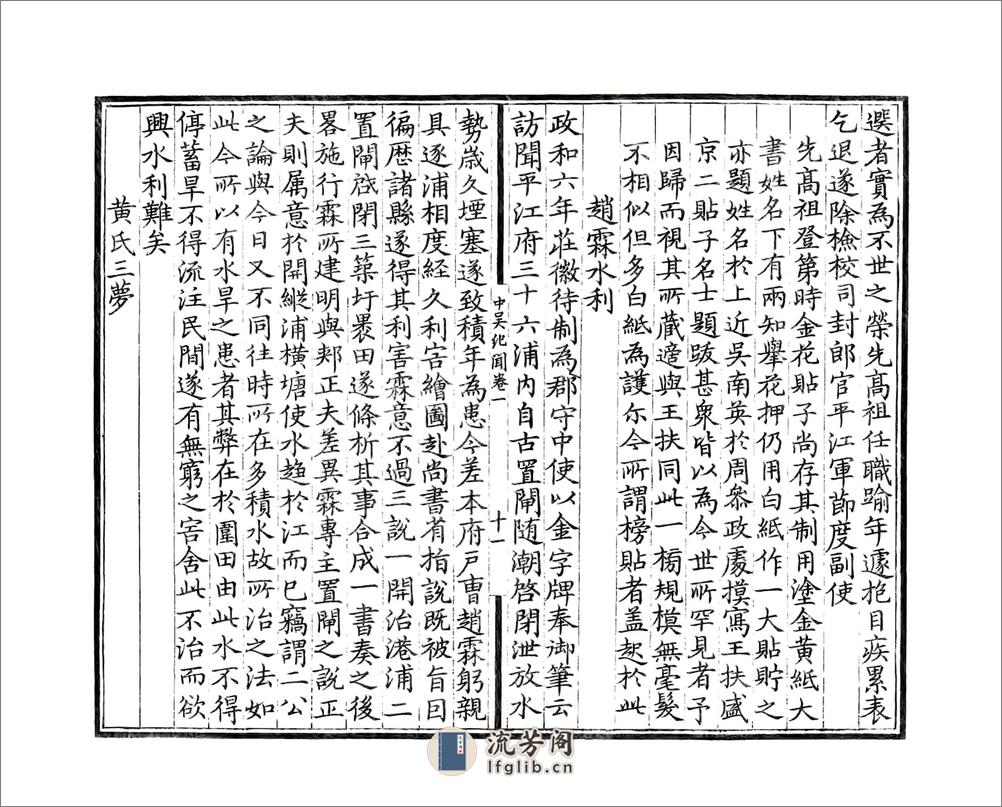 選者實為不世之榮先髙祖任職踰年遽抱目疾累表
乞退遂除檢校司封郎官平江軍節度副使
先髙祖登第時金花貼子尚存其制用塗金黄紙大
書姓名下有兩知舉花押仍用白紙作一大貼貯之
亦題姓名於上近吳南英於周叅政處摸寫王扶盛
京二貼子名士題跋甚衆皆以為今世所罕見者予
因歸而視其所蔵適與王扶同此一榜規模無毫髮
不相似但多白紙為護尓今所謂榜貼者盖起於此
趙霖水利
政和六年莊徽待制為郡守中使以金字牌奉御筆云
訪聞平江府三十六浦内自古置閘随潮啓閉泄放水
中吴紀聞卷一
十一
勢歳久堙塞遂致積年為患今差本府戸曹趙霖躬親
具逐浦相度經久利害繪圖赴尚書省指說既被旨囙
徧歴諸縣遂得其利害霖意不過三說一開治港浦二
置閘啟閉三築圩裹田遂條析其事合成一書奏之後
畧施行霖所建明與郟正夫差異霖專主置閘之說正
夫則属意於開縱浦橫塘使水趋於江而已竊謂二公
之論與今日又不同往時所在多積水故所治之法如
此今所以有水旱之患者其弊在於圍田由此水不得
停蓄旱不得流注民間遂有無窮之害舍此不治而欲
興水利難矣
黄氏三夢
流芳阁
lfglib.cn